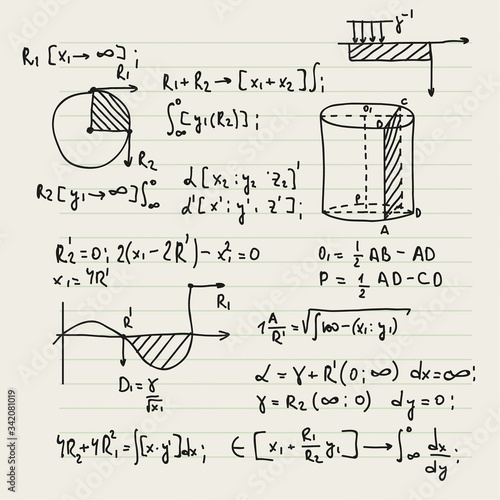 γ⁻¹
R₁ [x₁ → ∞] ;
R₁
R₁ + R₂ → [x₁ + x₂]∫;
∫₀^∞ [y₁(R₂)] ;
R₂
O₁ C
D
P
D
A
R₂[y₁ → ∞]∫₀^∞
α [x₂ ; y₂ · z₂]'
α' [x' ; y', z'] ;
R₂' = 0 ; 2(x₁ - 2R') - x₁² = 0
x₁ = 4R'
O₁ = 1/2 AB - AD
P = 1/2 AD - CD
R₁
R'
1 A/R' = √∫100 - (x₁ ; y₁)
D₁ = γ/√x₁
α = γ + R'(0 ; ∞) dx = ∞ ;
γ = R₂(∞ ; 0) dy = 0 ;
4R₂ + 4R₁² = ∫[x · y']dx ; ∈ [x₁ + R₁/R₂ y₁] → ∫₀^∞ dx/dy ;
Adobe Stock | #342081019